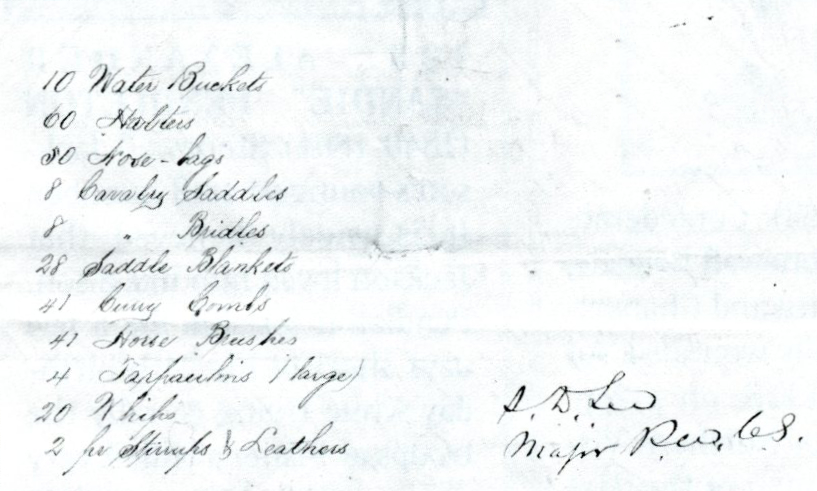 10 Water Buckets
60 Halters
30 Nose-bags
8 Cavalry Saddles
8 " Bridles
28 Saddle Blankets
41 Curry Combs
41 Horse Brushes
4 Tarpaulins (large)
20 Whips
2 pr Stirrups & Leathers
S. D. Lee
Major